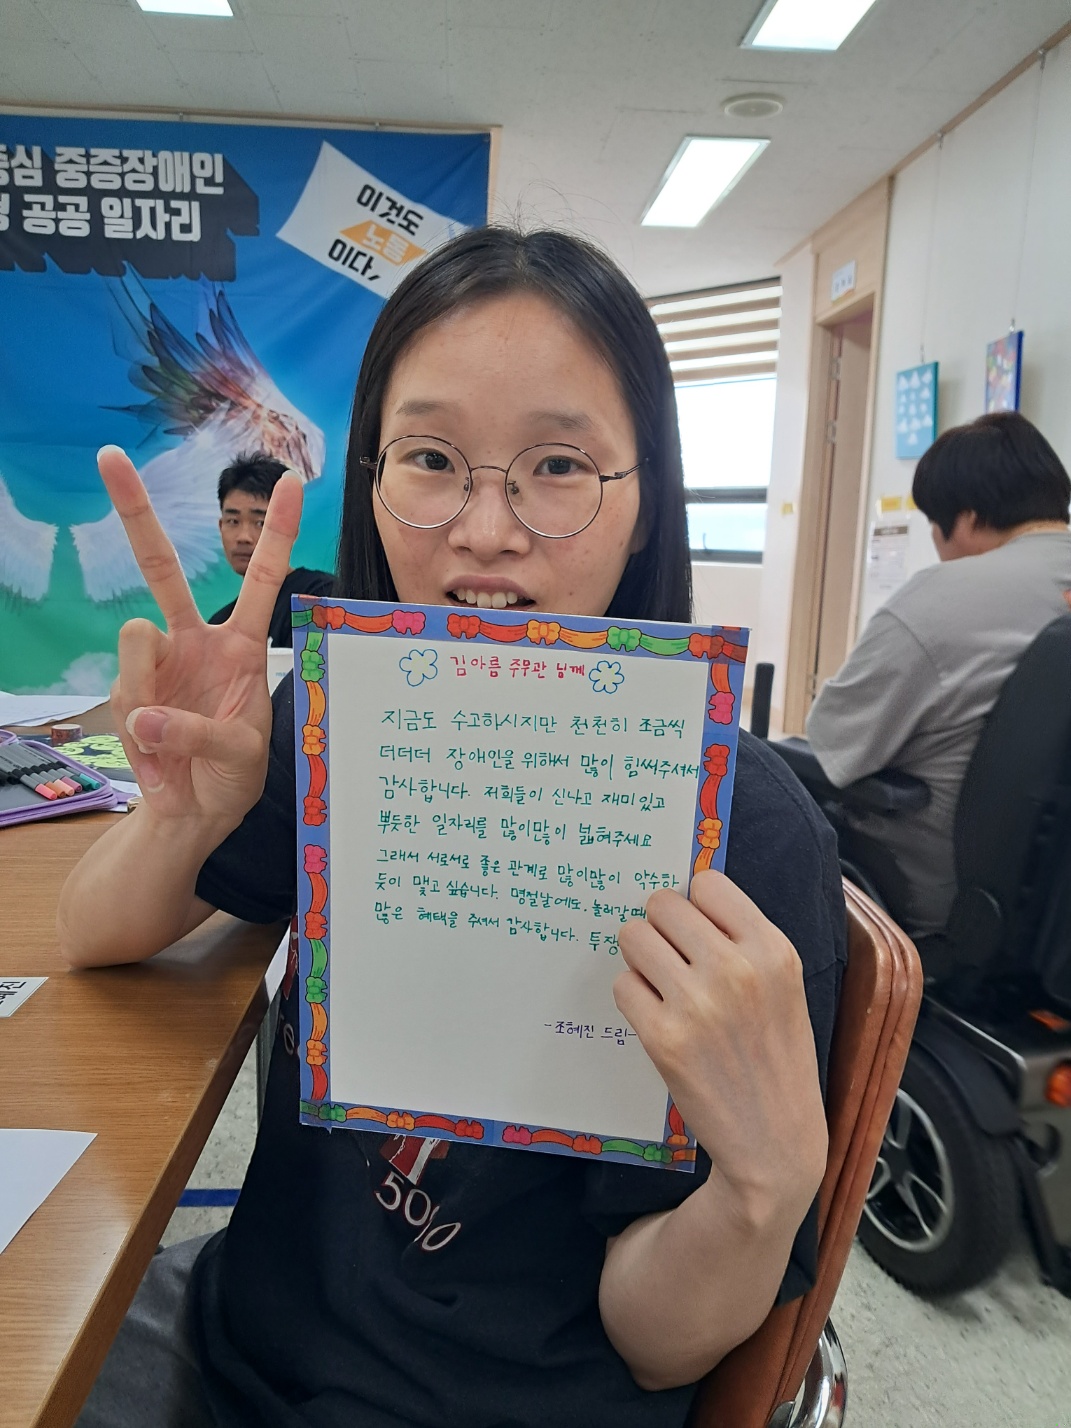 중심 중증장애인
공공 일자리
이것도
노동
이다,
김아름 주무관 님께
지금도 수고하시지만 천천히 조금씩
더더더 장애인을 위해서 많이 힘써주셔서
감사합니다. 저희들이 신나고 재미있고
뿌듯한 일자리를 많이많이 넓혀주세요
그래서 서로서로 좋은 관계로 많이많이 악수하
듯이 맺고 싶습니다. 명절날에도, 놀러갈때
많은 혜택을 주셔서 감사합니다. 투쟁
-조혜진 드림-
50